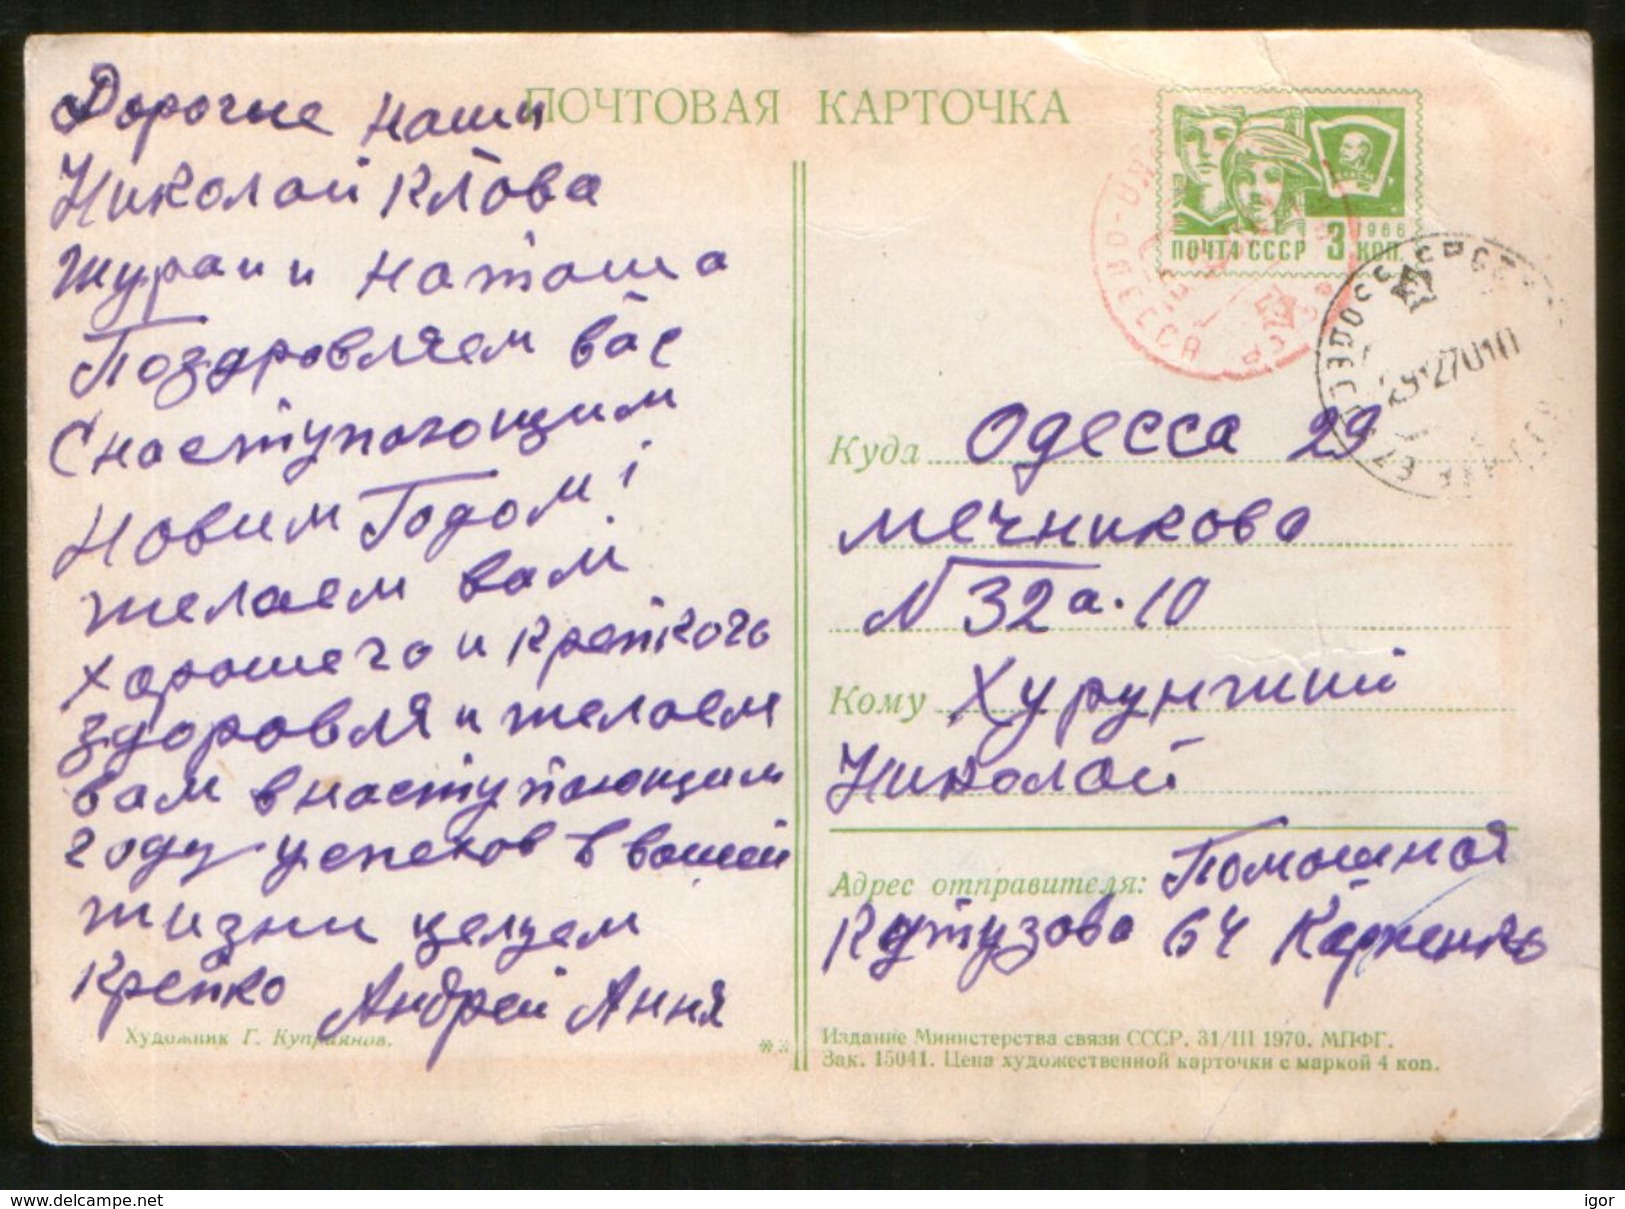 Дорогие наши
Николай Клова
Шура и и Наташа
Поздровляем вас
С наступающим
Новим Годом!
желаем вам
хорошего и крепкого
здоровля и желаем
вам в наступающим
году успехов в вашей
жизни целуем
Крепко Андрей Ання
Художник Г. Куприянов.
ПОЧТОВАЯ КАРТОЧКА
1966
ПОЧТА СССР 3 КОП.
ОДЕССА
Куда Одесса 29
мечникова
N 32а.10
Кому Хурунгжий
Николай
Адрес отправителя: Помошная
Кутузова 64 Карпенко
Издание Министерства связи СССР. 31/III 1970. МПФГ.
Зак. 15041. Цена художественной карточки с маркой 4 коп.
www.delcampe.net
igor